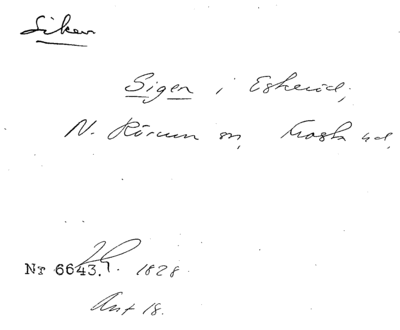 Siken
Sigen i Eskeröd,
N. Rörum sn, Frosta hd.
Nr 6643. 1828
Ant 18.